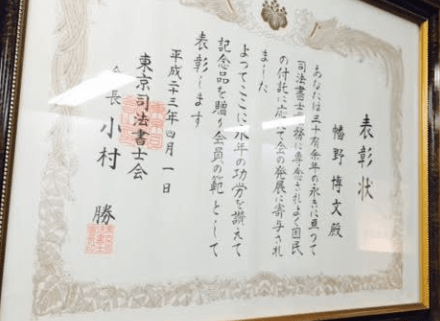 表彰状
幡野 博文 殿
あなたは三十有余年の永きに亘って
司法書士業務に専念されよく国民
の付託に応えて会の発展に寄与され
ました
よってここに永年の功労を讃えて
記念品を贈り会員の範として
表彰します
平成二十三年四月一日
東京司法書士会
会長 小村 勝